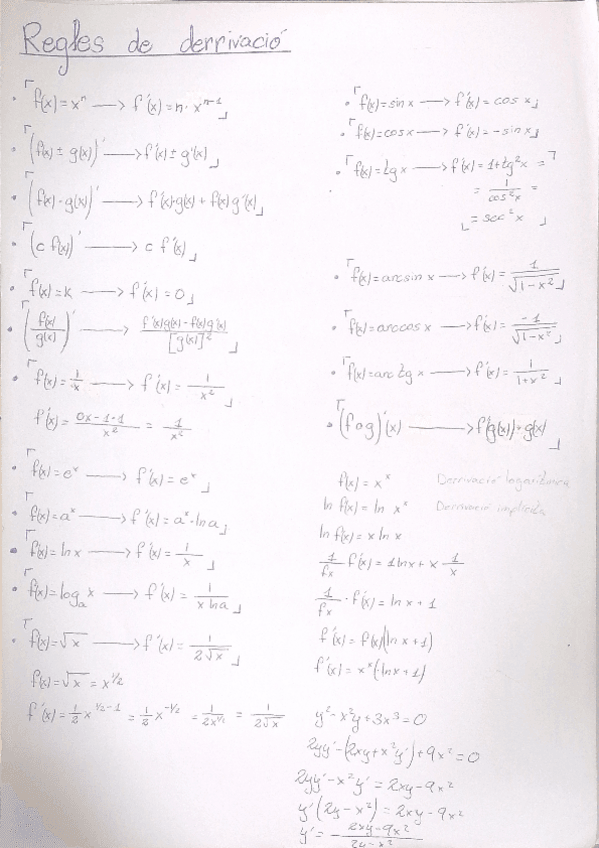 Regles de derrivació
f(x) = xⁿ ⟶ f'(x) = n · xⁿ⁻¹
(f(x) ± g(x))' ⟶ f'(x) ± g'(x)
(f(x) · g(x))' ⟶ f'(x)·g(x) + f(x)·g'(x)
(c f(x))' ⟶ c f'(x)
f(x) = K ⟶ f'(x) = 0
(f(x)/g(x))' ⟶ f'(x)g(x) - f(x)g'(x) / [g(x)]²
f(x) = 1/x ⟶ f'(x) = 1/x²
f'(x) = 0x - 1·1 / x² = 1/x²
f(x) = eˣ ⟶ f'(x) = eˣ
f(x) = aˣ ⟶ f'(x) = aˣ · ln a
f(x) = ln x ⟶ f'(x) = 1/x
f(x) = logₐ x ⟶ f'(x) = 1 / x ln a
f(x) = √x ⟶ f'(x) = 1 / 2√x
f(x) = √x = x^1/2
f'(x) = 1/2 x^1/2 - 1 = 1/2 x^-1/2 = 1 / 2x^1/2 = 1 / 2√x
f(x) = sin x ⟶ f'(x) = cos x
f(x) = cos x ⟶ f'(x) = - sin x
f(x) = tg x ⟶ f'(x) = 1 + tg²x =
= 1 / cos²x =
= sec²x
f(x) = arcsin x ⟶ f'(x) = 1 / √1-x²
f(x) = arccos x ⟶ f'(x) = -1 / √1-x²
f(x) = arctg x ⟶ f'(x) = 1 / 1+x²
(f o g)'(x) ⟶ f'(g(x)) · g(x)
f(x) = xˣ Derrivació logarítmica
ln f(x) = ln xˣ Derrivació implícita
ln f(x) = x ln x
1/fx f'(x) = 1 ln x + x 1/x
1/fx · f'(x) = ln x + 1
f'(x) = f(x)(ln x + 1)
f'(x) = xˣ (ln x + 1)
y² - x²y + 3x³ = 0
2yy' - (2xy + x²y') + 9x² = 0
2yy' - x²y' = 2xy - 9x²
y'(2y - x²) = 2xy - 9x²
y' = - 2xy - 9x² / 2y - x²